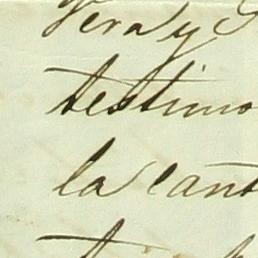 Vera y
testimo
la cant